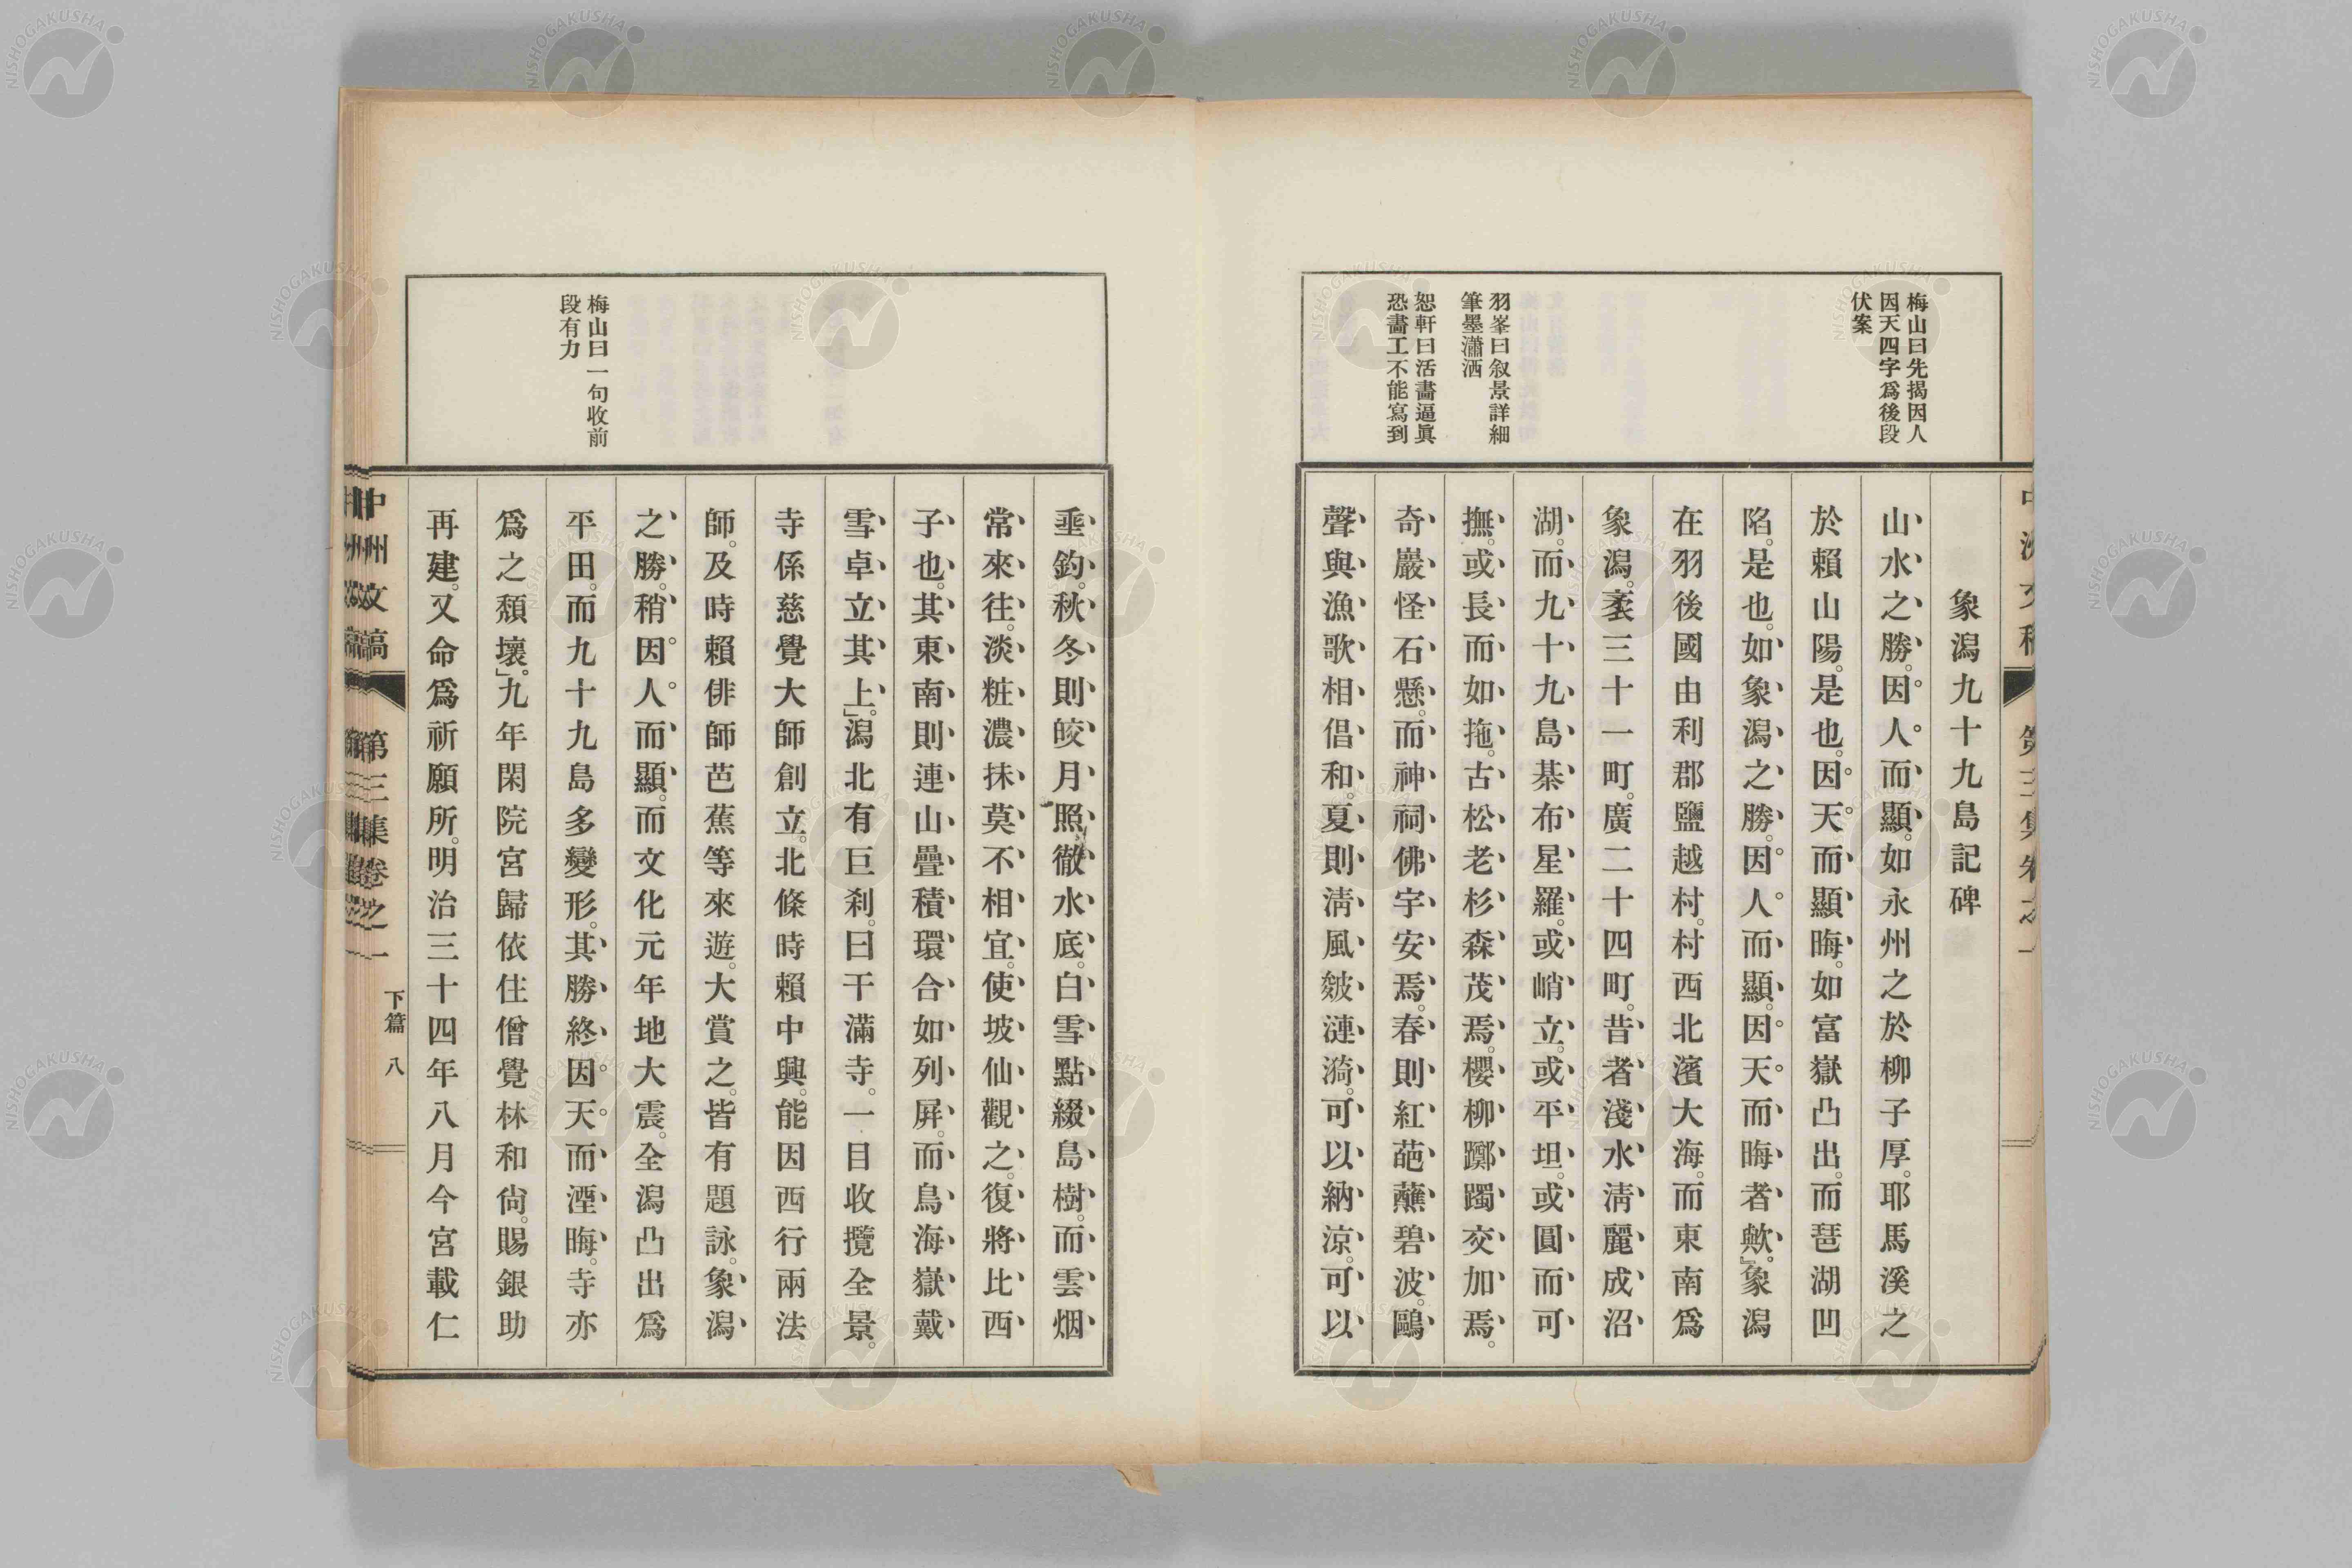 梅山曰先揭因人
因天四字爲後段
伏案
羽峯曰敘景詳細
筆墨瀟洒
恕軒曰活畫逼眞
恐畵工不能寫到
象潟九十九島記碑
山水之勝。因人而顯。如永州之於柳子厚。耶馬溪之
於賴山陽。是也。因天而顯晦。如富嶽凸出。而琶湖凹
陷。是也。如象潟之勝。因人而顯。因天而晦者歟。」象潟
在羽後國由利郡鹽越村。村西北濱大海。而東南爲
象潟。袤三十一町。廣二十四町。昔者淺水淸麗成沼
湖。而九十九島棊布星羅。或峭立。或平坦。或圓而可
撫。或長而如拖。古松老杉森茂焉。櫻柳躑躅交加焉。
奇巖怪石懸。而神祠佛宇安焉。春則紅葩蘸碧波。鷗
聲與漁歌相倡和。夏則淸風皴漣漪。可以納涼。可以
梅山曰一句收前
段有力
垂釣。秋冬則皎月照徹水底。白雪點綴島樹。而雲烟
常來往。淡粧濃抹莫不相宜。使坡仙觀之。復將比西
子也。其東南則連山疊積環合如列屛。而鳥海嶽戴
雪卓立其上。」潟北有巨刹。曰干滿寺。一目收攬全景。
寺係慈覺大師創立。北條時賴中興。能因西行兩法
師。及時賴俳師芭蕉等來遊。大賞之。皆有題詠。象潟
之勝。稍因人而顯。而文化元年地大震。全潟凸出爲
平田。而九十九島多變形。其勝終因天而湮晦。寺亦
爲之頹壞。」九年閑院宮歸依住僧覺林和尙。賜銀助
再建。又命爲祈願所。明治三十四年八月今宮載仁
中州文稿 第三集卷之一 下篇 八
NISHOGAKUSHA